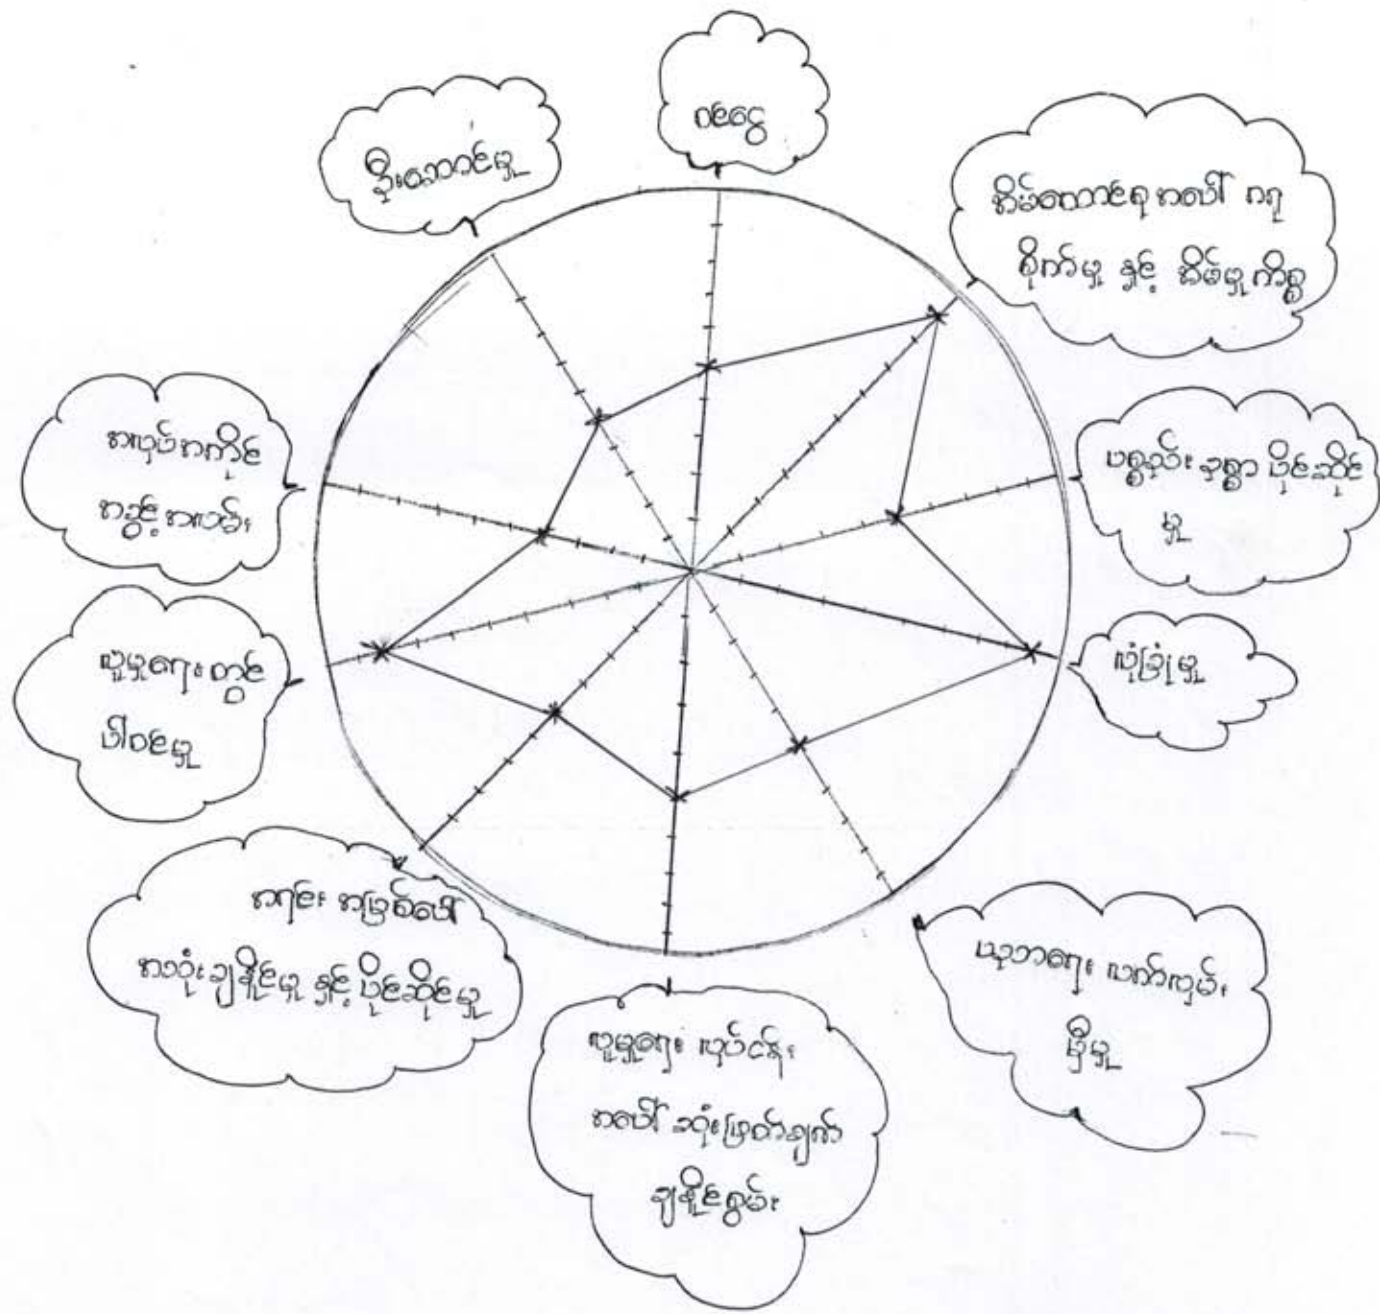 ဝင်ငွေ
အိမ်ထောင်စု အပေါ် ဂရု
စိုက်မှု နှင့် အိမ်မှုကိစ္စ
ပစ္စည်း ဥစ္စာ ပိုင်ဆိုင်
မှု
လုံခြုံမှု
ပညာရေး လက်လှမ်း
မှီမှု
လူမှုရေး လုပ်ငန်း
အပေါ် ဆုံးဖြတ်ချက်
ချနိုင်စွမ်း
အရင်း အမြစ်ပေါ်
အသုံးချနိုင်မှု နှင့် ပိုင်ဆိုင်မှု
လူမှုရေး တွင်
ပါဝင်မှု
အလုပ်အကိုင်
အခွင့်အလမ်း
ဦးဆောင်မှု